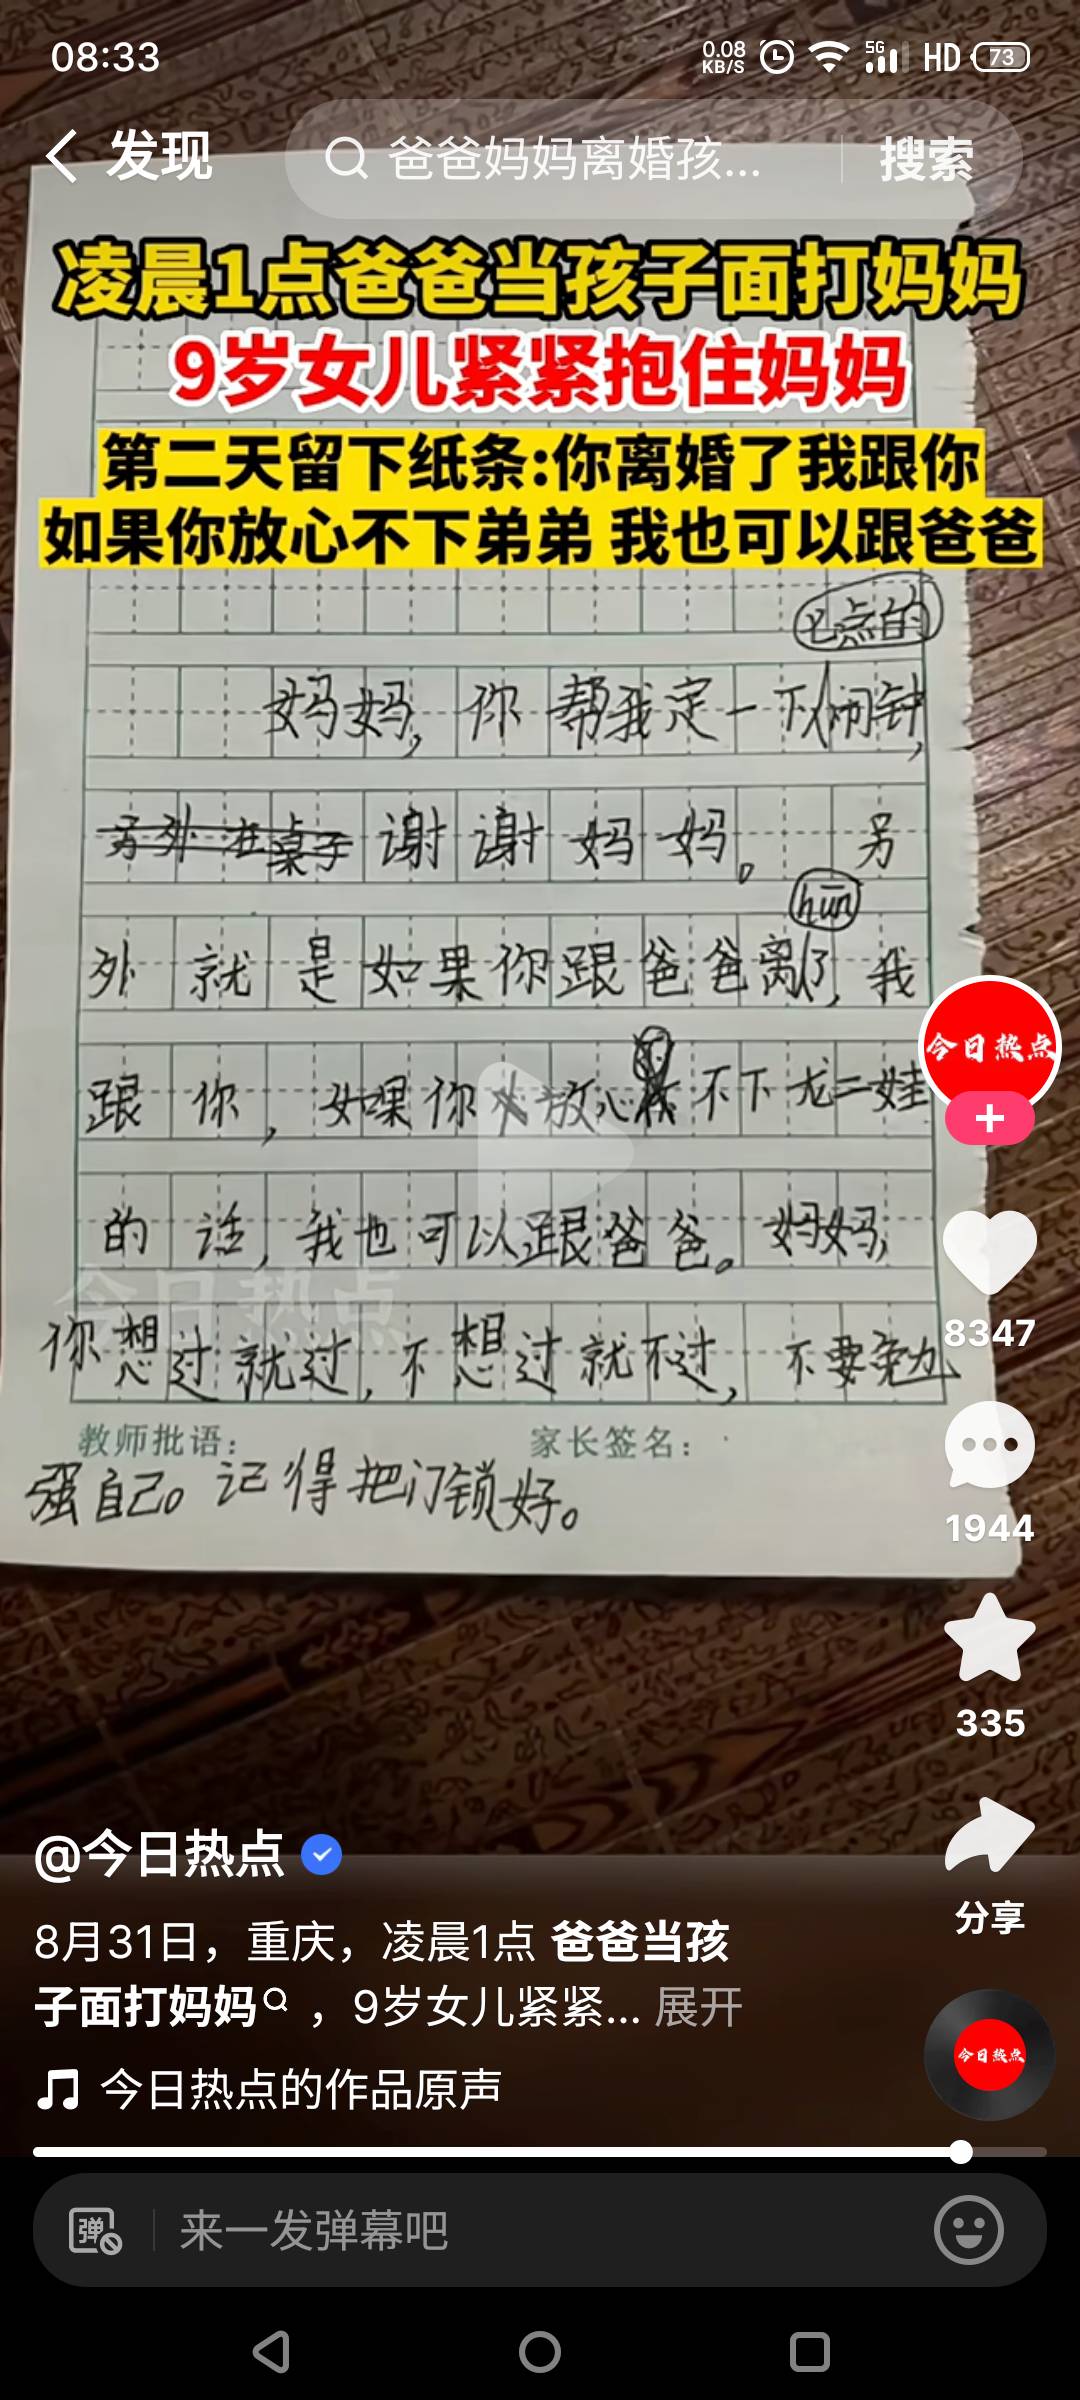 08:33
0.08
KB/S
5G
HD
73
发现
爸爸妈妈离婚孩...
搜索
凌晨1点爸爸当孩子面打妈妈
9岁女儿紧紧抱住妈妈
第二天留下纸条:你离婚了我跟你
如果你放心不下弟弟 我也可以跟爸爸
点的
妈妈，你帮我定一下闹钟，
另外在桌子谢谢妈妈。另
hūn
外就是如果你跟爸爸离了，我
跟你，如果你放心不下龙二娃
的话，我也可以跟爸爸。妈妈，
你想过就过，不想过就不过，不要勉
教师批语：
家长签名：
强自己。记得把门锁好。
今日热点
今日热点
8347
1944
335
分享
@今日热点
8月31日，重庆，凌晨1点 爸爸当孩
子面打妈妈 ，9岁女儿紧紧... 展开
今日热点的作品原声
今日热点
弹
来一发弹幕吧